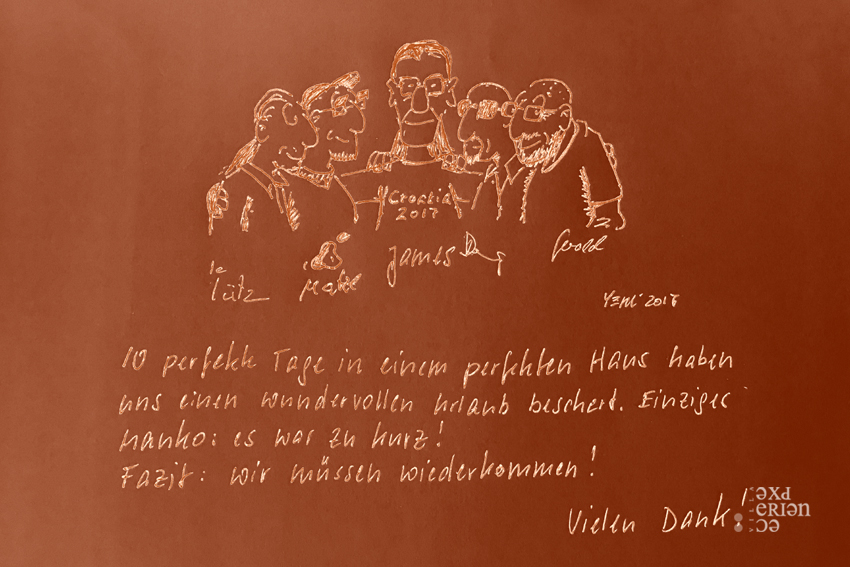 Croatia
2017
James
10 perfekte Tage in einem perfekten Haus haben
uns einen wundervollen Urlaub beschert. Einziger
Manko: es war zu kurz!
Fazit: wir müssen wiederkommen!
Vielen Dank!
VILLAS
EXP
ERIEN
CE